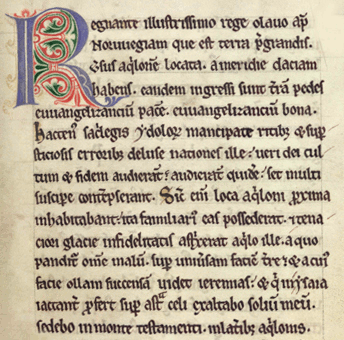 Regnante illustrissimo rege olauo ap̄
Norwegiam que est terra p̄grandis.
uersus aq̇lonē locata. a meridie daciam
habens. eandem ingressi sunt t̄rā pedes
euuangelizanciū pacē. euuangelizanciū bona.
hacten᷒ sac̓legis ⁊ doloꝝ mancipate ritibꝫ & suꝑ
sticiosis erroribꝫ deluse nationes ille. ueri dei cul
tum & fidem audierāt. audierāt quidē. sꝫ multi
suscipe contēpserant. Sic̄ enī loca aq̇loni ꝓxima
inhabitabant. ita familiari᷒ eas possederat. & tena
ciori glacie infidelitatis astrīxerat aq̇lo ille. a quo
panditr̄ om̄e malū. suꝑ uniu̓sam faciē t̄re. & a cui᷒
facie ollam succensā uidet ieremias. & q̇ in ysaia
iactant̓ ꝓfert suꝑ ast̓ celi exaltabo soliū meū.
sedebo in monte testamenti. in lat̓ibꝫ aq̇lonis.